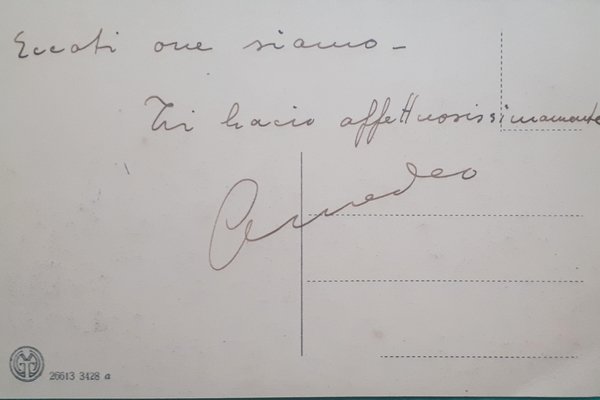 Eccoti ove siamo -
Ti bacio affettuosissimamente
Amedeo
26613 3428 a